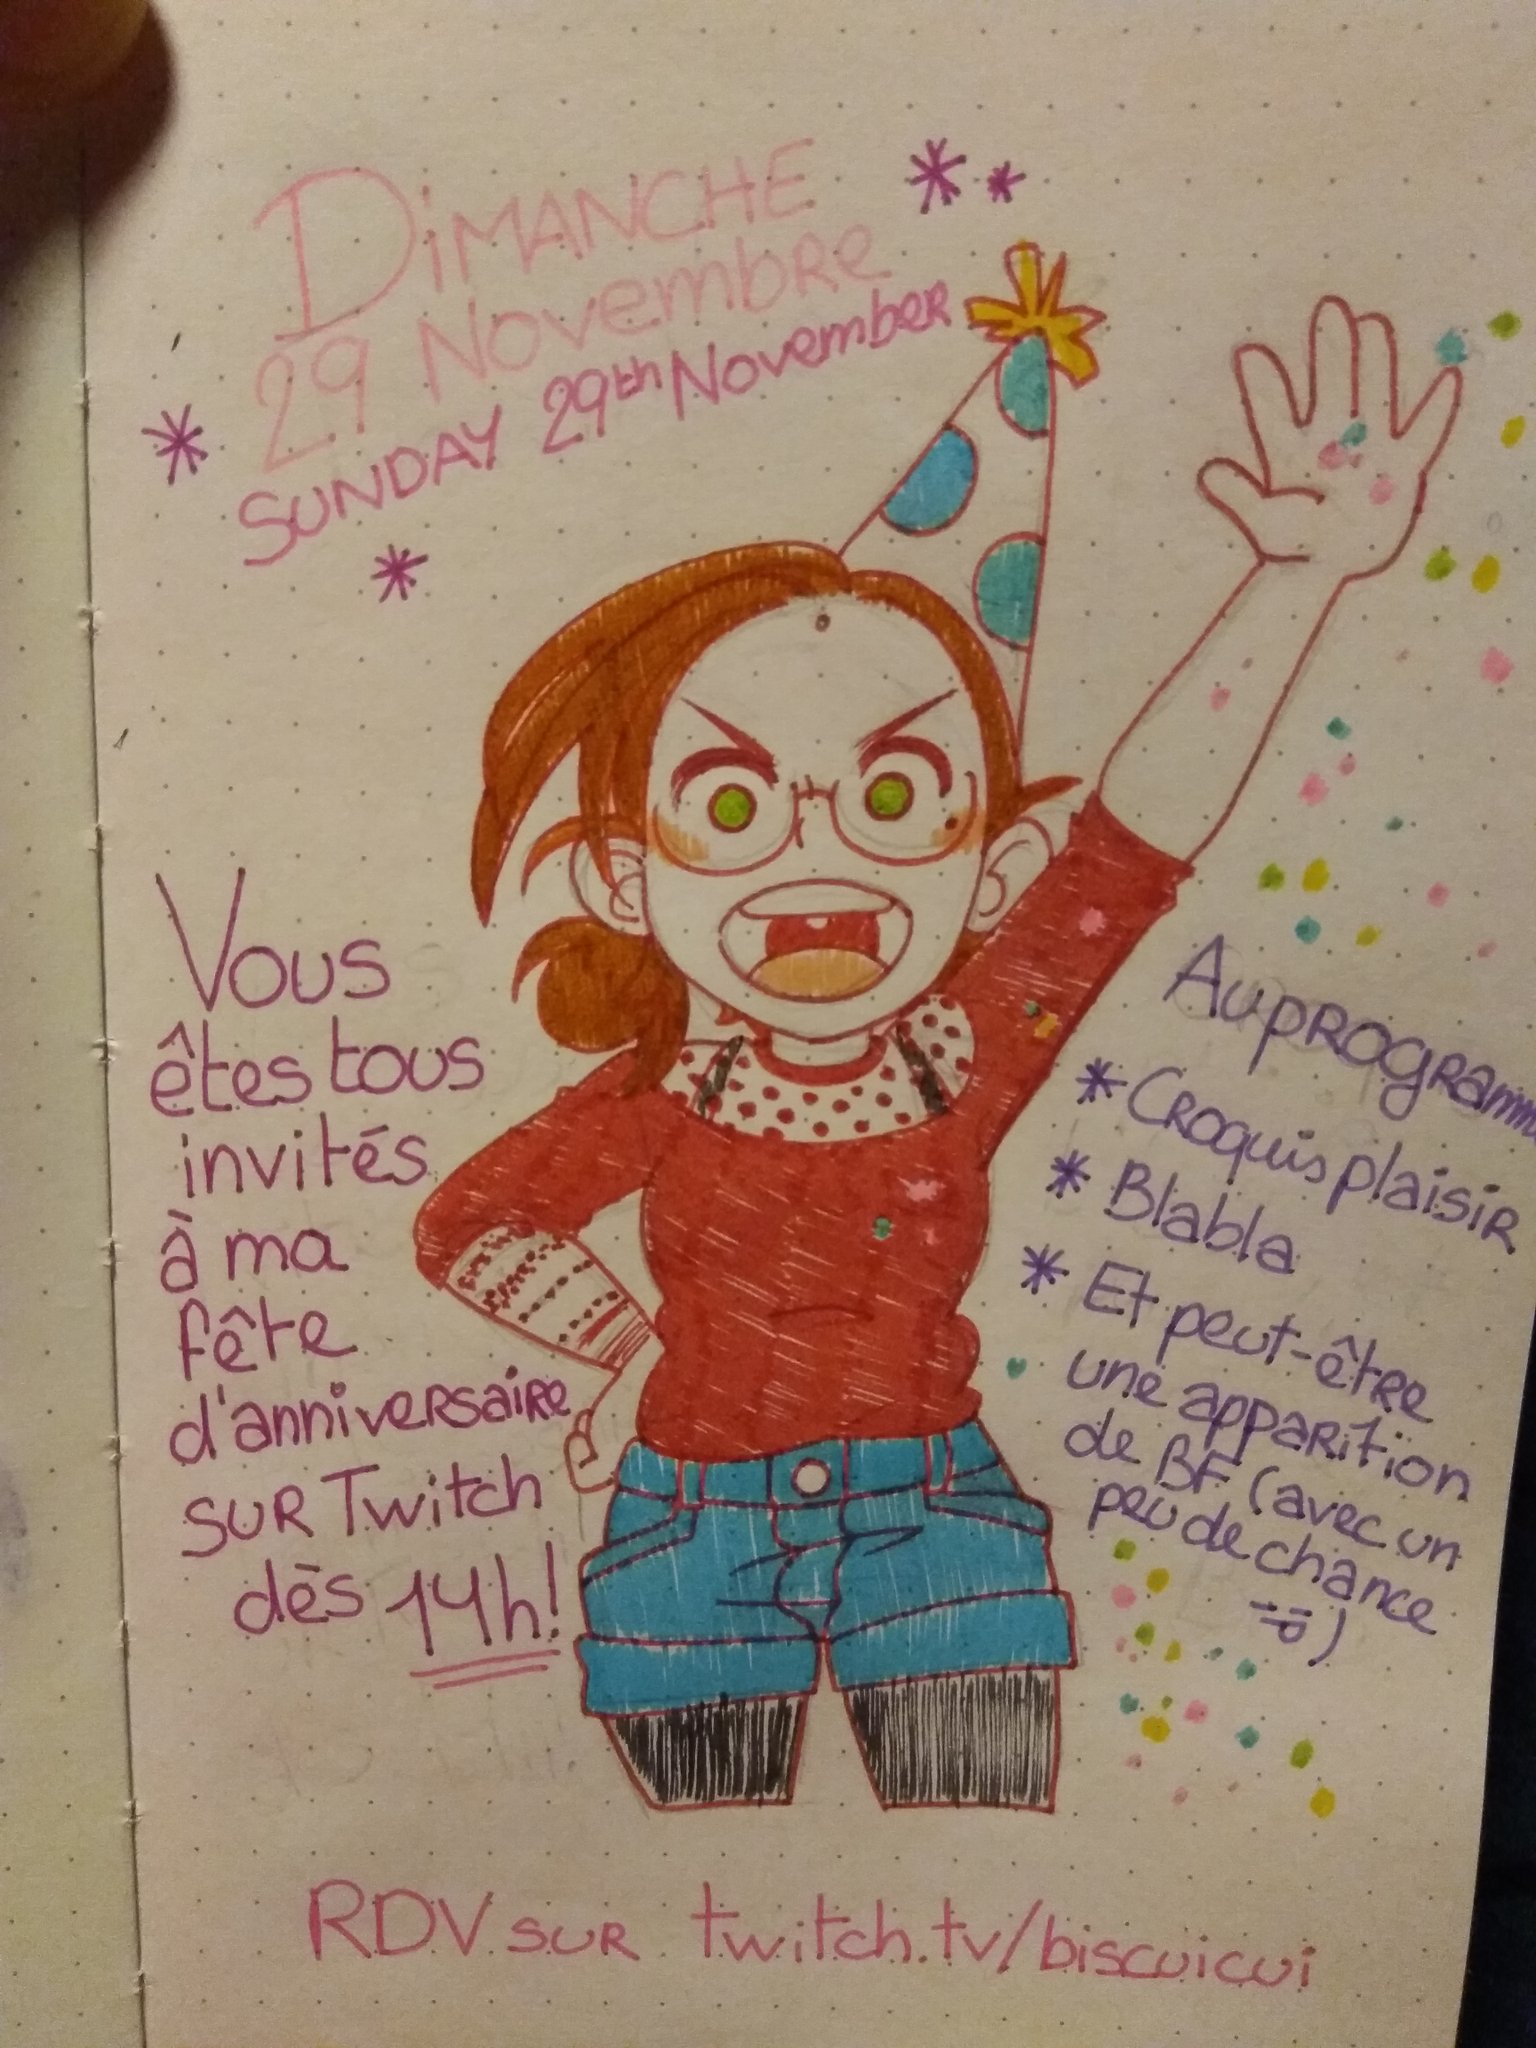 DiMANCHE
29 Novembre
SUNDAY 29th November
Vous
êtes tous
invités
à ma
fête
d'anniversaire
sur Twitch
dès 14h!
Au programm
* Croquis plaisir
* Blabla
* Et peut-être
une apparition
de BF (avec un
peu de chance
=p)
RDV sur twitch.tv/biscuicui